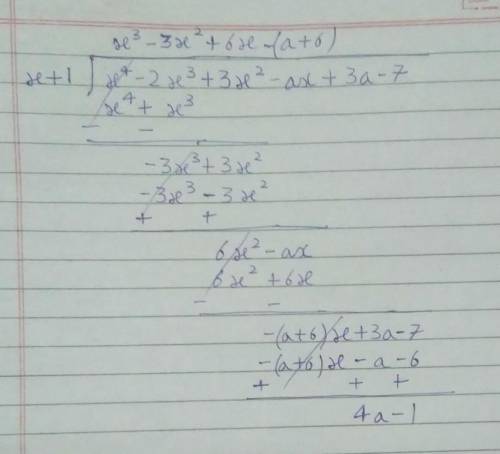 x³ - 3x² + 6x - (a+6)
x+1 ) x⁴ - 2x³ + 3x² - ax + 3a - 7
x⁴ + x³
- -
-3x³ + 3x²
-3x³ - 3x²
+ +
6x² - ax
6x² + 6x
- -
-(a+6)x + 3a - 7
-(a+6)x - a - 6
+ + +
4a - 1